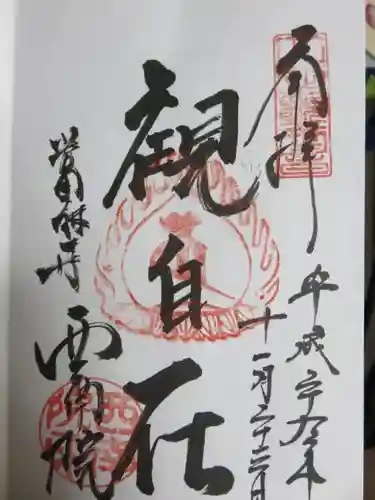 奉拝
平成二十九年
十一月二十三日
観自在
當麻寺
西南院